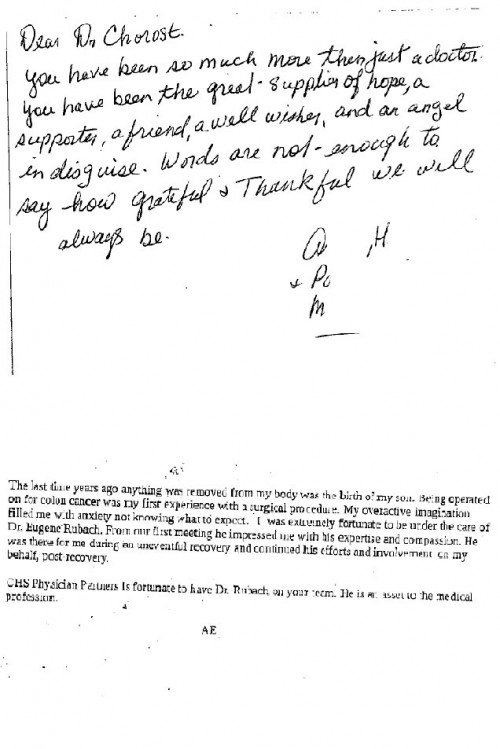 Dear Dr Chorost.
you have been so much more then just a doctor.
you have been the great supplier of hope, a
supporter, a friend, a well wisher, and an angel
in disguise. Words are not enough to
say how grateful & Thankful we will
always be.
H
& Po
M
The last time years ago anything was removed from my body was the birth of my son. Being operated
on for colon cancer was my first experience with a surgical procedure. My overactive imagination
filled me with anxiety not knowing what to expect. I was extremely fortunate to be under the care of
Dr. Eugene Rubach. From our first meeting he impressed me with his expertise and compassion. He
was there for me during an uneventful recovery and continued his efforts and involvement on my
behalf, post recovery.
CHS Physician Partners is fortunate to have Dr. Rubach on your team. He is an asset to the medical
profession.
AE